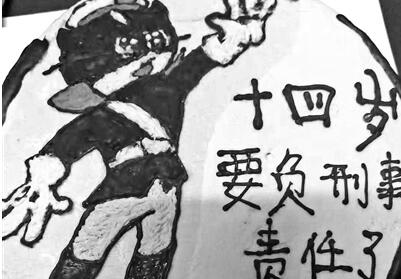 十四岁
要负刑事
责任了